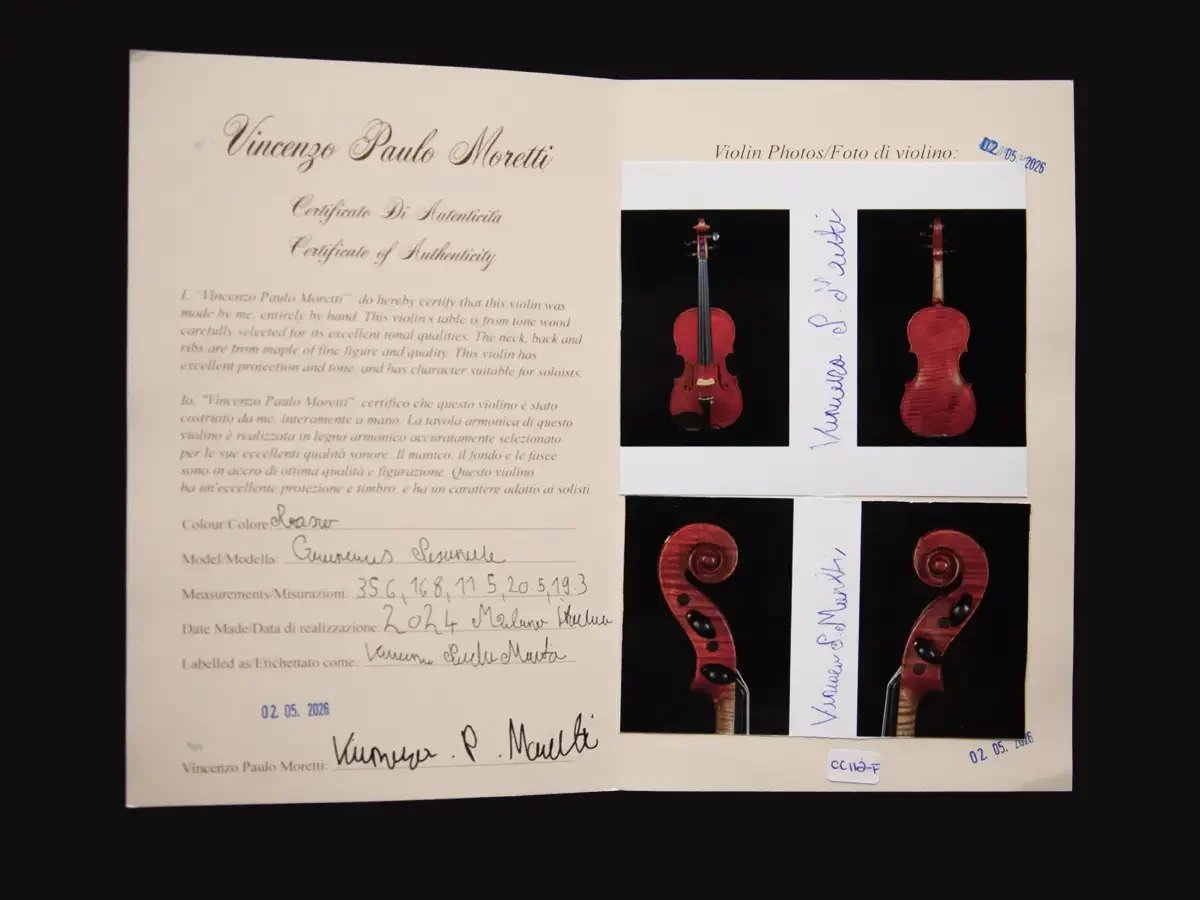 Vincenzo Paulo Moretti
Certificato Di Autenticita
Certificate of Authenticity
I, "Vincenzo Paulo Moretti" do hereby certify that this violin was
made by me, entirely by hand. This violin s table is from tone wood
carefully selected for its excellent tonal qualities. The neck, back and
ribs are from maple of fine figure and quality. This violin has
excellent protection and tone, and has character suitable for soloists.
Io, "Vincenzo Paulo Moretti" certifico che questo violino è stato
costruito da me, interamente a mano. La tavola armonica di questo
violino è realizzata in legno armonico accuratamente selezionato
per le sue eccellenti qualità sonore. Il manico, il fondo e le fasce
sono in acero di ottima qualità e figurazione. Questo violino
ha un'eccellente protezione e timbro, e ha un carattere adatto ai solisti.
Colour/Colore:
Model/Modella:
Measurements/Misurazioni: 356, 168, 11 5, 20.5, 19.3
Date Made/Data di realizzazione: 2024 Milano
Labelled as/Etichettato come:
02. 05. 2026
Vincenzo Paulo Moretti: Vincenzo . P . Moretti
Violin Photos/Foto di violino:
02 05 2026
02. 05. 2026